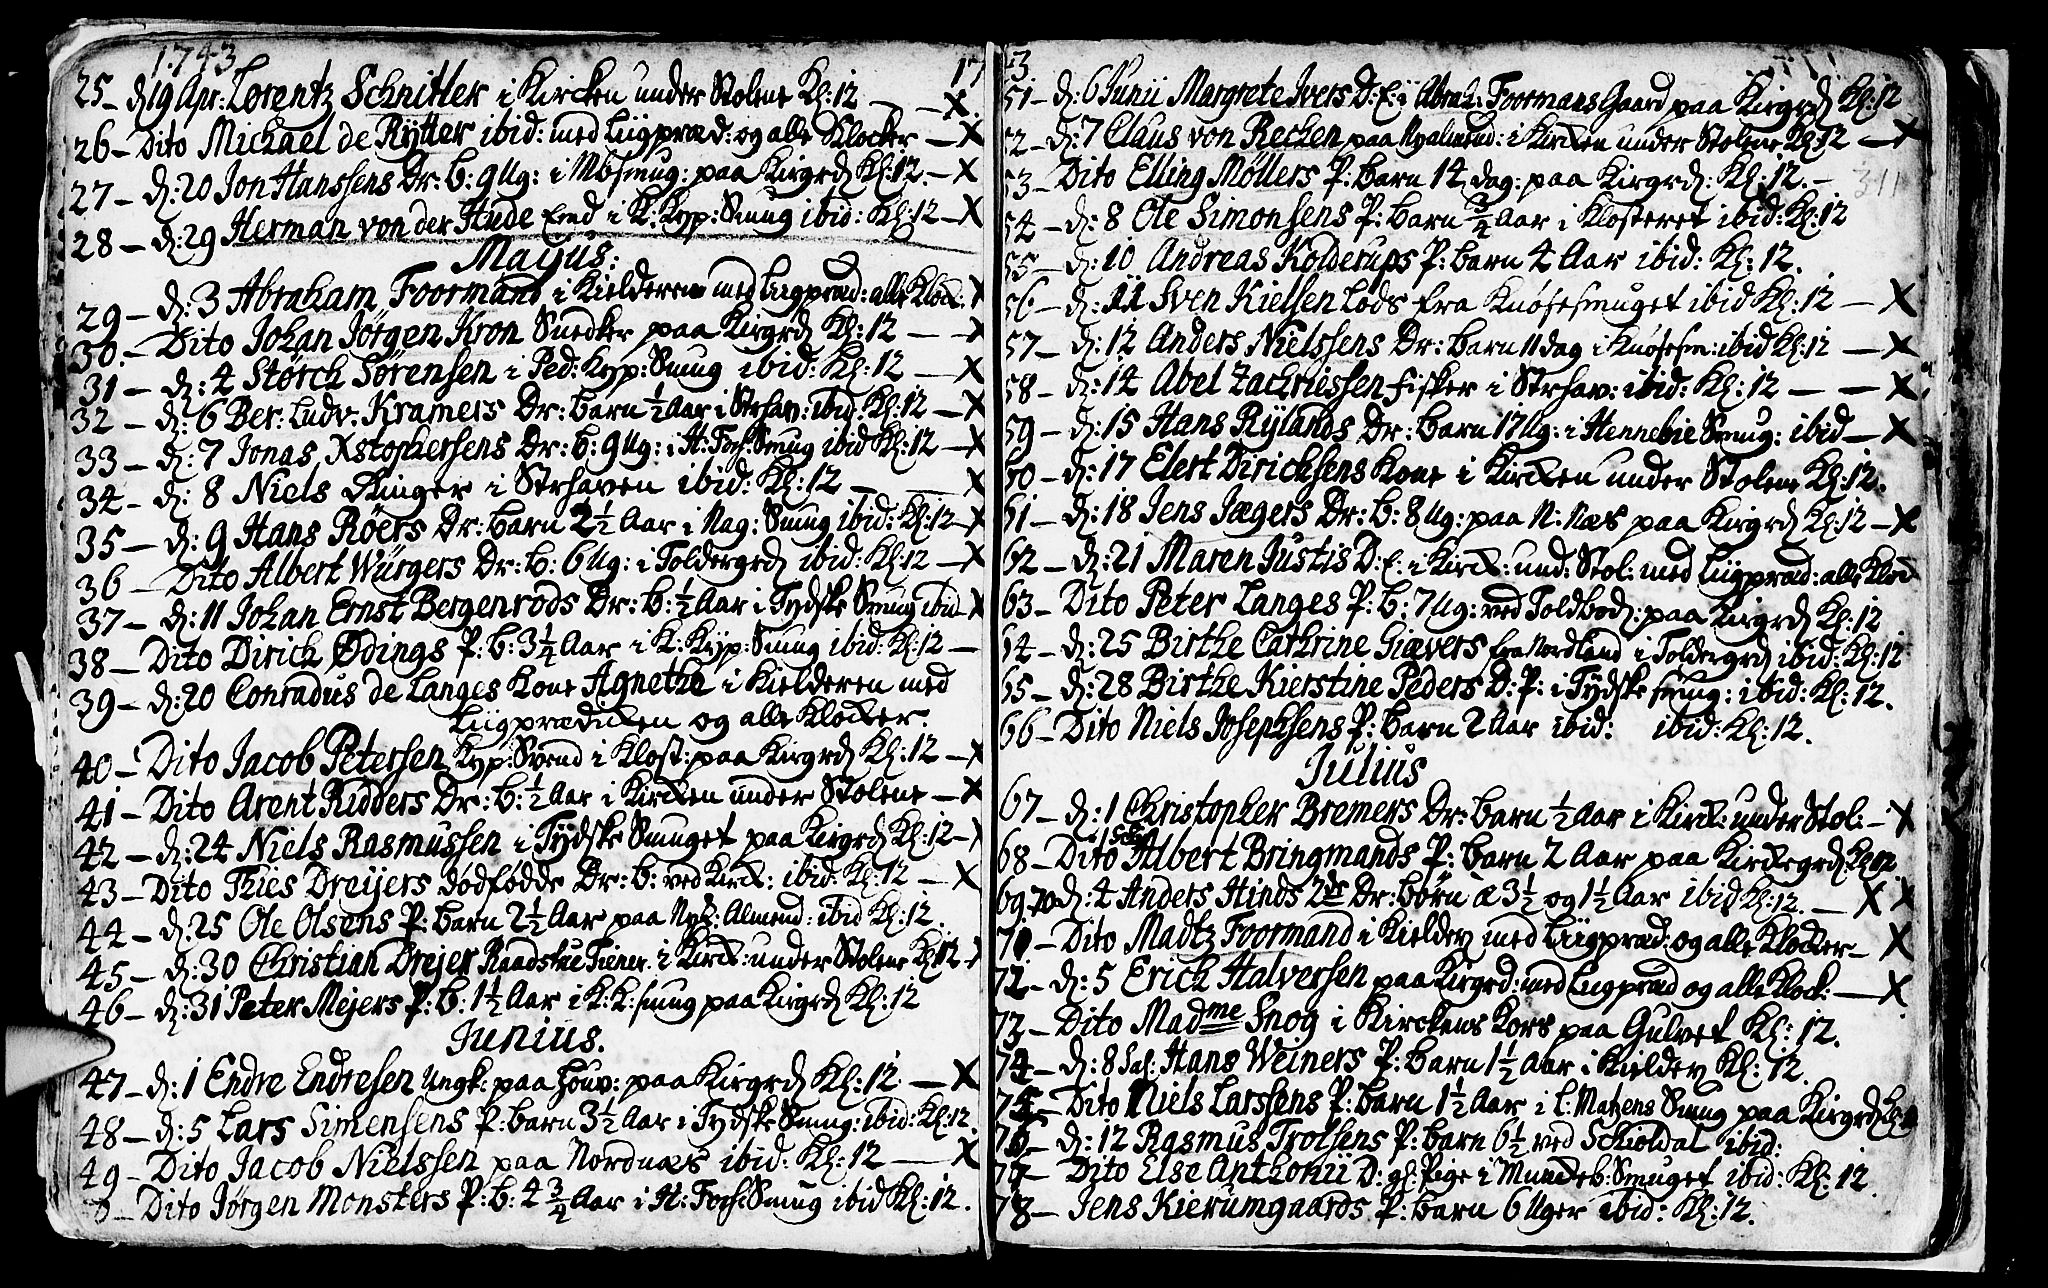 1743
25 - d 19 Apr: Lorentz Schnitler i Kircken under Stolene Kl: 12 - X
26 - Dito Michael de Rÿtter ibid: med Liigpræd: og alle Klocker - X
27 - d: 20 Jon Hanssens Dr: b: 9 Ug: i paa Kirgrd Kl: 12. - X
28 - d: 29 Herman von der Hude i K: Kyp: Smug ibid: Kl: 12 - X
Majus:
29 - d: 3 Abraham Foormand i Kielderen med Liigpræd: alle Klock: X
30. - Dito Johan Jörgen Kron Snedker paa Kirgrd Kl: 12 - X
31 - d: 4 Störck Sörensen i Ped: Kyp: Smug ibid: Kl: 12 - X
32 - d: 6 Ber: Ludv: Kramers Dr: barn ½ Aar i Strhav: ibid: Kl: 12 - X
33 - d: 7 Jonas Xstophersens Dr: b: 9 Ug: i H: Foss: Smug ibid Kl: 12 - X
34 - d: 8 Niels Ringer i Strhaven ibid: Kl: 12 - X
35 - d: 9 Hans Röers Dr: barn 2½ Aar i Nag: Smug ibid: Kl: 12 - X
36 - Dito Albert Würgers Dr: b: 6 Ug: i Toldergrd ibid: Kl: 12 - X
37 - d: 11 Johan Ernst Bergenrods Dr: b: ½ Aar i Tydske Smug ibid - X
38 - Dito Dirick Ödings P: b: 3¼ Aar i K: Kÿp: Smug ibid: Kl: 12 -
39 - d: 20 Conradus de Langes Kone Agnethe i Kielderen med
Liigprædicken og alle Klocker.
40 - Dito Jacob Petersen Kyp: Svend i Klost: paa Kirgrd Kl: 12 - X
41 - Dito Arent Ridders Dr: b: ½ Aar i Kircken under Stolene - X
42 - d: 24 Niels Rasmussen i Tÿdske Smuget paa Kirgrd Kl: 12 - X
43 - Dito Thies Dreijers dödfödde Dr: b: ved Kirck: ibid: Kl: 12 - X
44 - d: 25 Ole Olsens P: barn 2½ Aar paa Nye: Almend: ibid Kl: 12
45 - d: 30 Christian Drejer Raadstue Tiener i Kirck: under Stolene Kl 12 - X
46 - d: 31 Peter Mejers P: b: 1½ Aar i K: K: smug paa Kirgrd Kl: 12
Junius.
47 - d: 1 Endre Endresen Ungk: paa Houv: paa Kirgrd Kl: 12 - X
48 - d: 5 Lars Simensens P: barn 3½ Aar i Tydske Smug: ibid: Kl: 12.
49 - Dito Jacob Nielssen paa Nordnæs ibid: Kl: 12 - X
Dito Jörgen Monsters P: b: 4¾ Aar i H: Foss: Smug ibid Kl: 12.
1743
311
51 - d: 6 Junii Margrete Ivers D: E: i Abrah: Foormans Gaard paa Kirgrd Kl: 12
52 - d: 7 Claus von Recken paa Nyalmend: i Kircken under Stolene Kl: 12 - X
53 - Dito Elling Möllers P: barn 14 dag: paa Kirgrd: Kl: 12. -
54 - d: 8 Ole Simonsens P: barn ¾ Aar i Klosteret ibid: Kl: 12
55 - d: 10 Andreas Kolderups P: barn 4 Aar ibid: Kl: 12.
56 - d: 11 Sven Kielsen Lods fra Knösesmuget ibid Kl: 12 - X
57 - d: 12 Anders Nielssens Dr: barn 11 dag i Knösesm: ibid Kl: 12 - X
58 - d: 14 Abel Zachriessen fisker i Strhav: ibid: Kl: 12 - - X
59 - d: 15 Hans Rÿlands Dr: barn 17 Ug: i Hennebie Smug: ibid - X
60 - d: 17 Elert Diricksens Kone i Kircken under Stolene Kl: 12.
61 - d: 18 Jens Jægers Dr: b: 8 Ug: paa N: Næs paa Kirgrd Kl: 12 - X
62 - d: 21 Maren Justis D: E: i Kirck: und: Stol: med Liigpræd: alle Klock
63 - Dito Peter Langes P: b: 7 Ug: ved Toldbod: paa Kirgrd Kl: 12
64 - d: 25 Birthe Cathrine Giævers fra Nordland i Toldergrd ibid: Kl: 12
65 - d: 28 Birthe Kierstine Peders D: P: i Tÿdske smug: ibid: Kl: 12.
66 - Dito Niels Josephsens P: barn 2 Aar ibid: ibid: Kl: 12.
Julius
67 - d: 1 Christopher Bremers Dr: barn ½ Aar i Kirck: under Stol: - X
68 - Dito Albert Bringmands P: barn 2 Aar paa Kirckegrd: Kl 12.
69 70 d: 4 Anders Hinds 2de Dr: börn a 3½ og 1½ Aar ibid Kl: 12. - X X
71 - Dito Madtz Foormand i Kielder med Liigpræd: og alle Klocker - X
72 - d: 5 Erick Halversen paa Kirgrd: med Liigpræd og alle Klock: - X
73 - Dito Madme Snog i Kirckens Kors paa Gulvet Kl: 12.
74 - d: 8 Sal: Hans Weiners P: barn 1½ Aar i Kielder Kl: 12.
75 - Dito Niels Larssens P: barn 1½ Aar i L: Matzens Smug paa Kirgrd Kl: 12
76 - d: 12 Rasmus Trolsens P: barn 6½ ved Schioldal ibid:
77 - Dito Else Anthonii D: gl: Pige i Munckeb: Smuget ibid: Kl: 12
78 - Jens Kierumgaards P: barn 6 Uger ibid: Kl: 12.